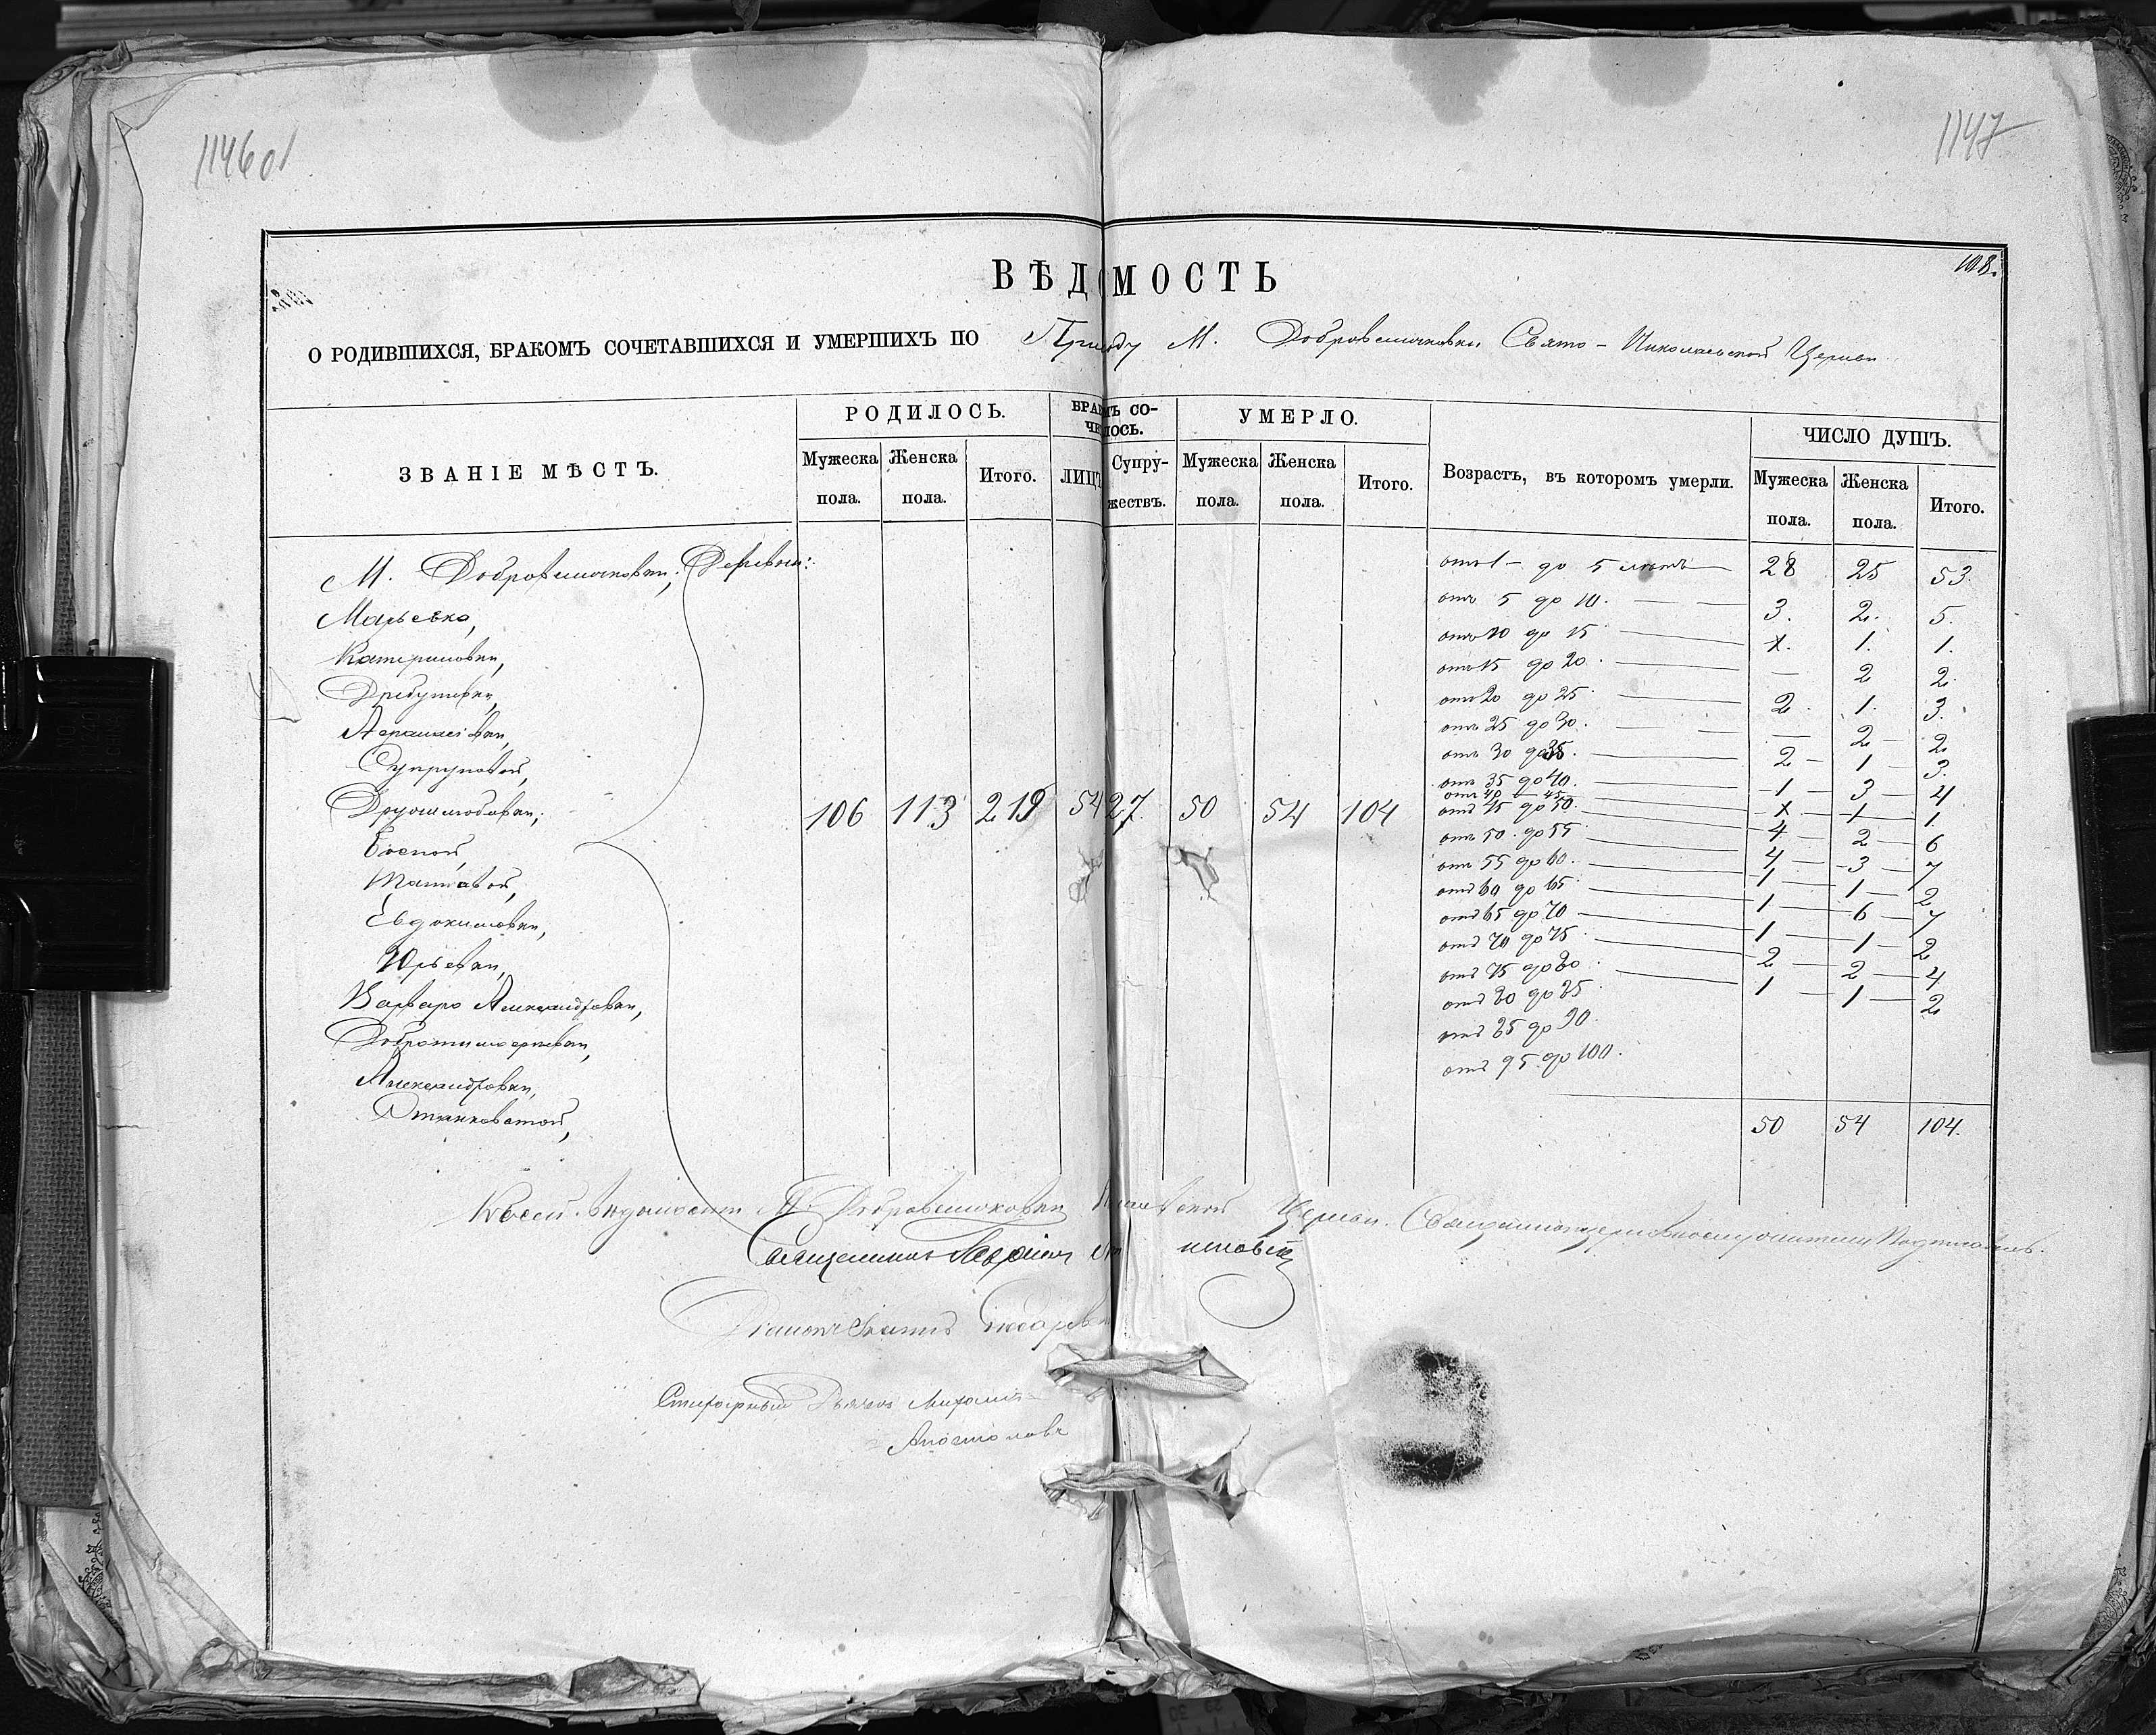 1146об
1147
108.
ВѢДОМОСТЬ
О РОДИВШИХСЯ, БРАКОМЪ СОЧЕТАВШИХСЯ И УМЕРШИХЪ ПО Приходу М. Добровеличковки Свято-Николаевской Церкви
ЗВАНІЕ МѢСТЪ.
РОДИЛОСЬ.
Мужеска пола.
Женска пола.
Итого.
БРАКОМЪ СОЧЕТАЛОСЬ.
ЛИЦЪ
Супружествъ.
УМЕРЛО.
Мужеска пола.
Женска пола.
Итого.
Возрастъ, въ которомъ умерли.
ЧИСЛО ДУШЪ.
Мужеска пола.
Женска пола.
Итого.
М. Добровеличковки, Деревни:
Марьевка,
Катериновки,
Супруновой,
Друшлюбовки,
Евдокимовки,
Юрьевки,
Варваро Александровки,
Александровки,
106 113 219 54 27. 50 54 104
отъ 1 - до 5 лѣтъ 28 25 53.
отъ 5 до 10. 3. 2. 5.
отъ 10 до 15 1. 1.
отъ 15 до 20. — 2 2.
отъ 20 до 25 2. 1. 3.
отъ 25 до 30. — 2 2.
отъ 30 до 35. 2 1 3.
отъ 35 до 40. 1 3 4
отъ 40 45 1 1.
отъ 45 до 50. 4 2 6
отъ 50. до 55 4 3 7
отъ 55 до 60. 1 1 2
отъ 60 до 65 1 6 7
отъ 65 до 70 1 1 2
отъ 70 до 75 2 2 4
отъ 75 до 80 1 1 2
отъ 80 до 85
отъ 85 до 90.
отъ 95 до 100.
50 54 104.
Къ сей вѣдомости М. Добровеличковки Николаевской Церкви Священноцерковнослужители
Священникъ
Діаконъ
Стихарный Дьячекъ Михаилъ
Апостоловъ